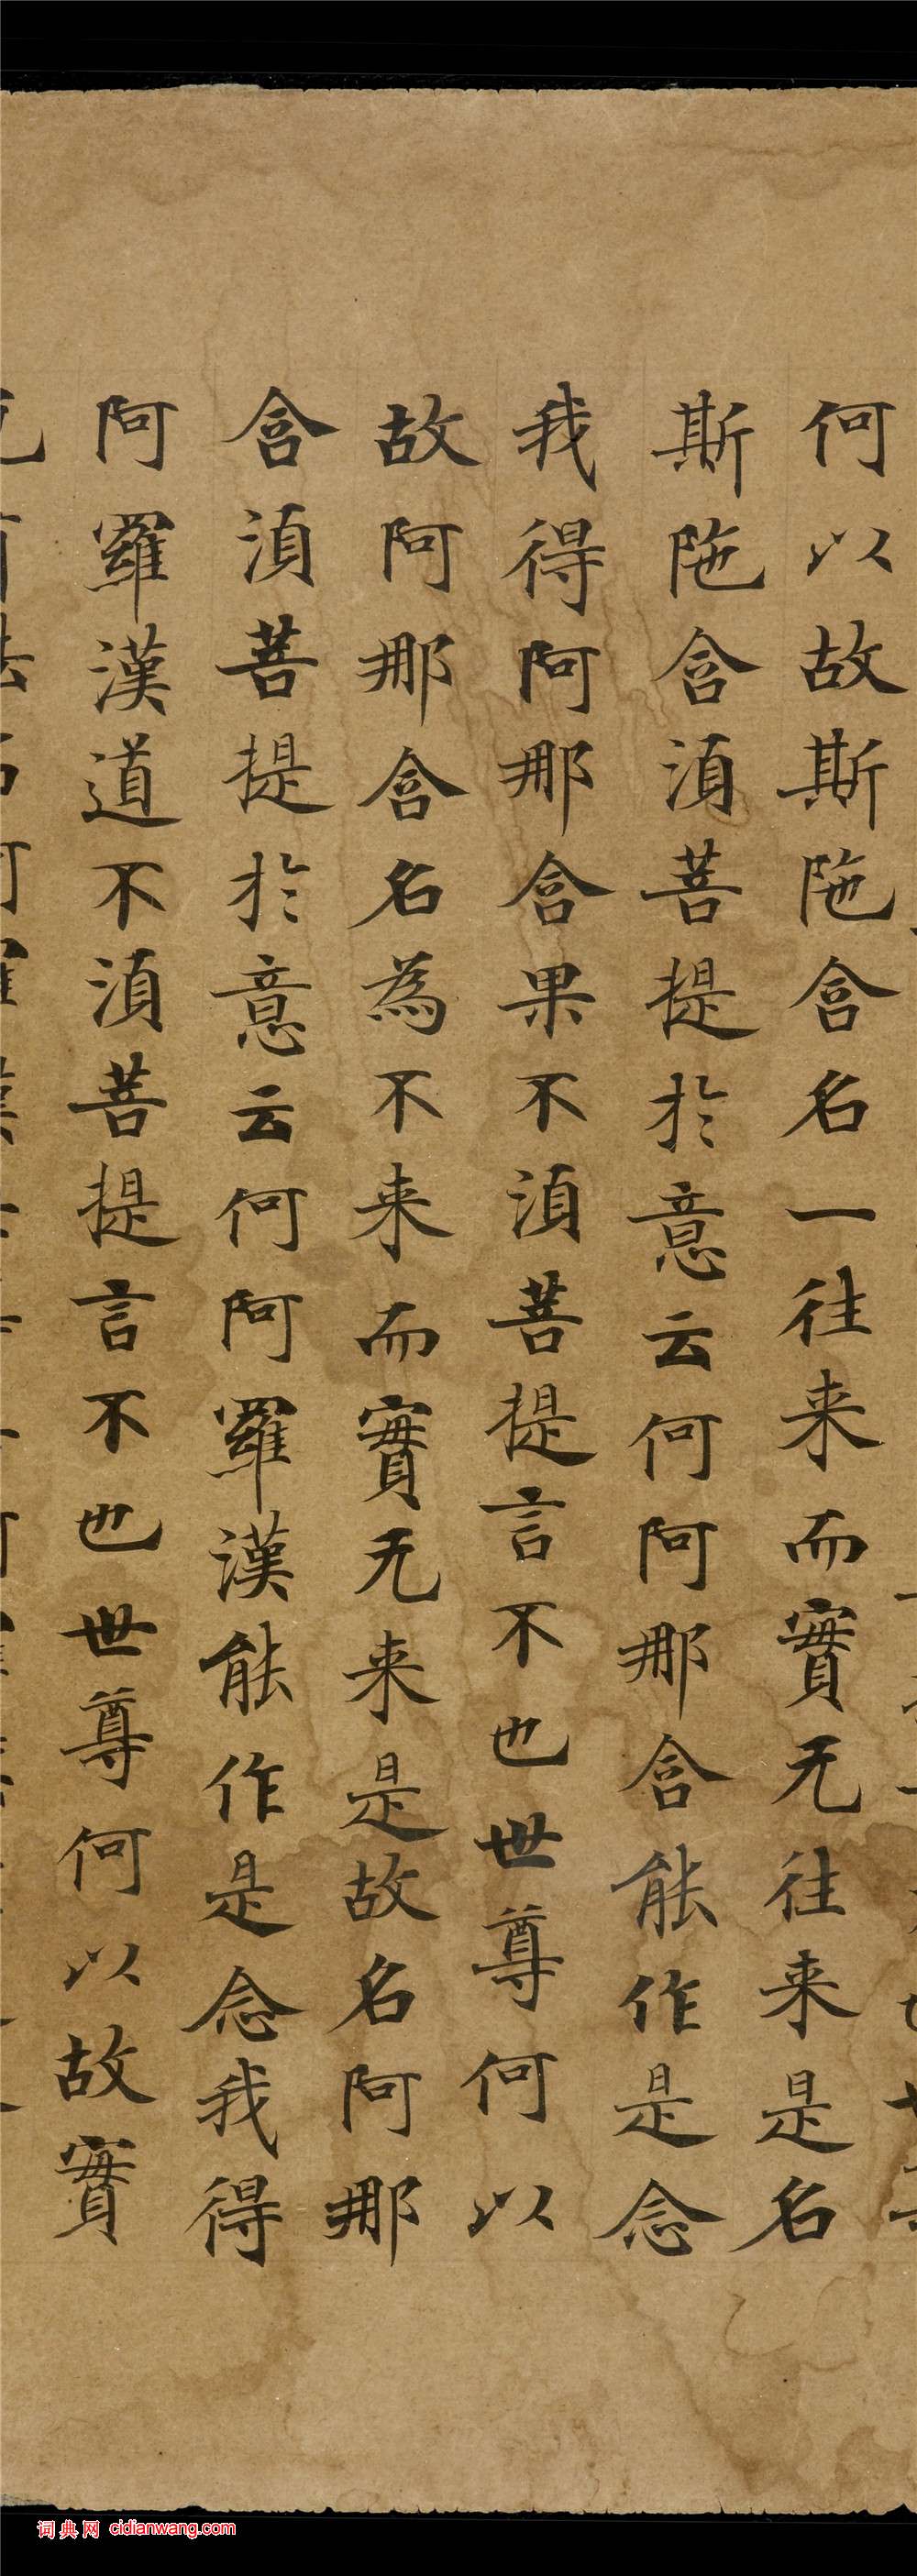 何以故斯陁含名一往来而實无往来是名
斯陁含湏菩提於意云何阿那含能作是念
我得阿那含果不湏菩提言不也世尊何以
故阿那含名為不来而實无来是故名阿那
含湏菩提於意云何阿羅漢能作是念我得
阿羅漢道不湏菩提言不也世尊何以故實
词典网 cidianwang.com